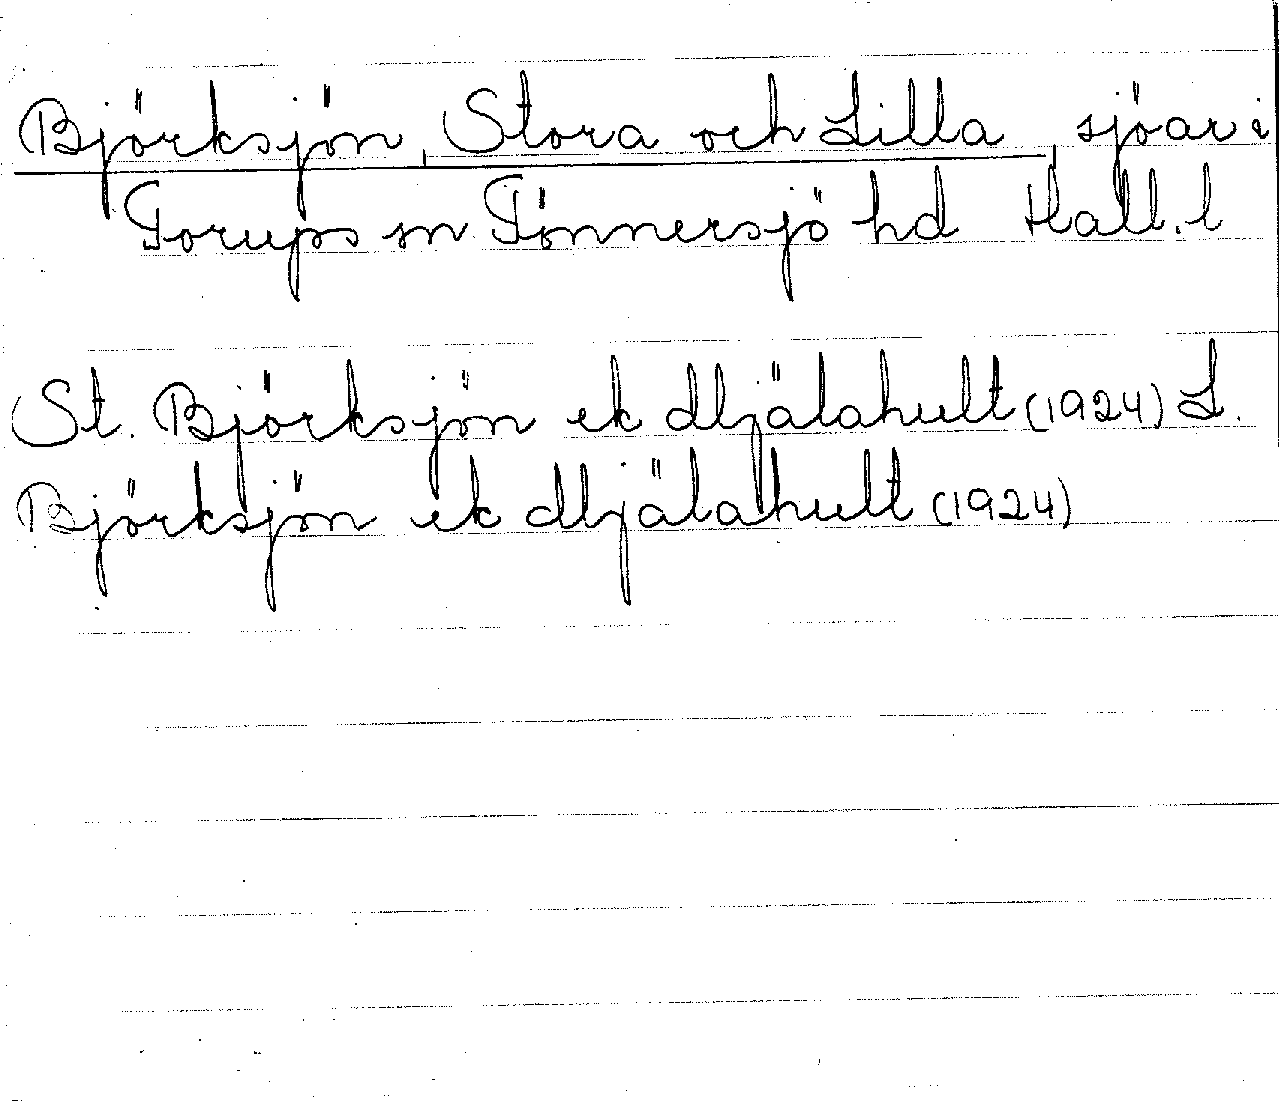 Björksjön, Stora och Lilla, sjöar i
Torups sn Tönnersjö hd Hall. l
St. Björksjön ek Mjälahult (1924) L.
Björksjön ek Mjälahult (1924)